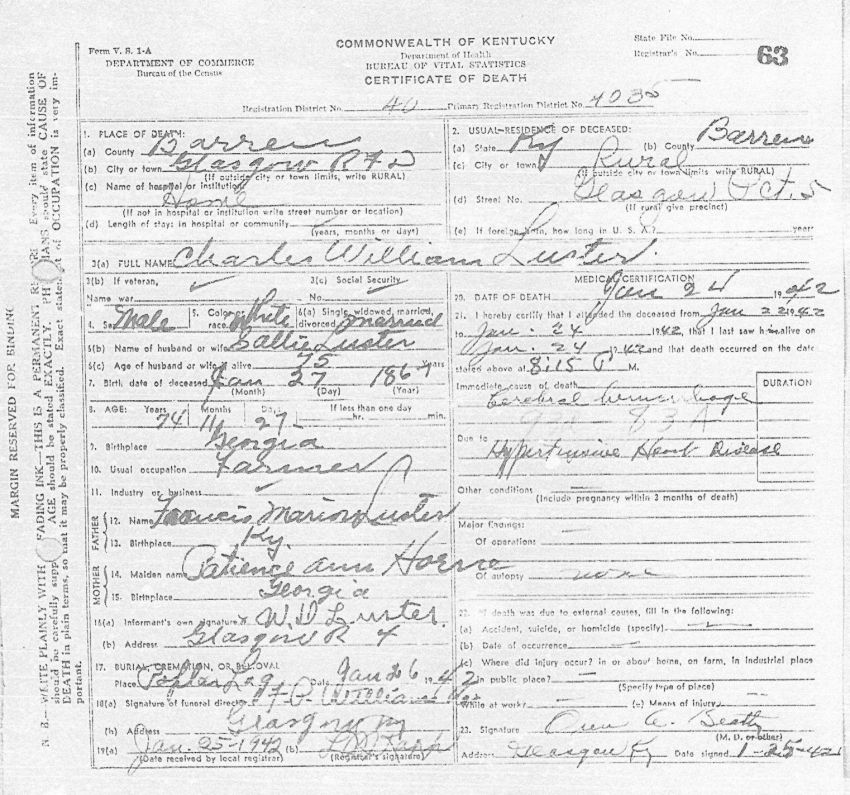 Form V. S. 1-A
DEPARTMENT OF COMMERCE
Bureau of the Census
COMMONWEALTH OF KENTUCKY
Department of Health
BUREAU OF VITAL STATISTICS
CERTIFICATE OF DEATH
State File No.
Registrar's No. 63
Registration District No. 40 Primary Registration District No. 4035
1. PLACE OF DEATH:
(a) County Barren
(b) City or town Glasgow R F D
(If outside city or town limits, write RURAL)
(c) Name of hospital or institution:
Home
(If not in hospital or institution write street number or location)
(d) Length of stay: in hospital or community
(years, months or days)
2. USUAL RESIDENCE OF DECEASED:
(a) State Ky (b) County Barren
(c) City or town Rural
(If outside city or town limits write RURAL)
(d) Street No. Glasgow Oct. 5
(If rural give precinct)
(e) If foreign born, how long in U. S. A.? years
3(a) FULL NAME Charles William Luster
3(b) If veteran,
Name war
3(c) Social Security
No.
4. Sex Male 5. Color or race White 6(a) Single, widowed, married, divorced married
6(b) Name of husband or wife Sallie Luster
6(c) Age of husband or wife if alive 75 Years
7. Birth date of deceased Jan 27 1867
(Month) (Day) (Year)
8. AGE: Years Months Days If less than one day
74 11 27 hr. min.
9. Birthplace Georgia
10. Usual occupation Farmer
11. Industry or business
FATHER
12. Name Francis Marion Luster
13. Birthplace Ky.
MOTHER
14. Maiden name Patience Ann
15. Birthplace Georgia
16(a) Informant's own signature W. D. Luster.
(b) Address Glasgow R 4
17. BURIAL, CREMATION, OR REMOVAL
Place Poplar Log Date Jan 26 1942
18(a) Signature of funeral director
(b) Address Glasgow Ky
19(a) Jan. 25-1942 (b)
(Date received by local registrar) (Registrar's signature)
MEDICAL CERTIFICATION
20. DATE OF DEATH Jan 24 1942
21. I hereby certify that I attended the deceased from Jan 22 1942
to Jan. 24 1942, that I last saw him alive on
Jan. 24 1942 and that death occurred on the date
stated above at 8:15 P M.
Immediate cause of death DURATION
Cerebral hemorrhage
83A
Due to
Hypertensive Heart Disease
Other conditions
(Include pregnancy within 3 months of death)
Major findings:
Of operations:
Of autopsy none
22. If death was due to external causes, fill in the following:
(a) Accident, suicide, or homicide (specify)
(b) Date of occurrence
(c) Where did injury occur? in or about home, on farm, in industrial place
in public place?
(Specify type of place)
While at work? (e) Means of injury
23. Signature Beatty
(M. D. or other)
Address Glasgow Ky Date signed 1-25-42
MARGIN RESERVED FOR BINDING
N. B.—WRITE PLAINLY WITH FADING INK—THIS IS A PERMANENT Every item of information
should be carefully AGE should be stated EXACTLY. should state CAUSE OF
DEATH in plain terms, so that it may be properly classified. Exact of OCCUPATION is very im-
portant.